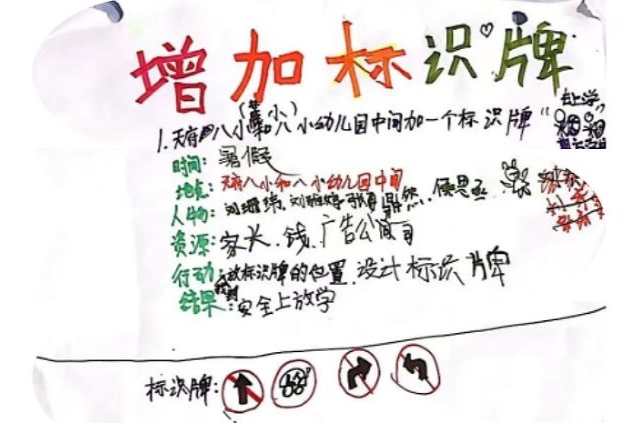 增加标识牌
1.天府八小和八小幼儿园中间加一个标识牌“
去上学
时间：暑假
地点：天府八小和八小幼儿园中间
人物：刘
资源：家长、钱、广告公司
行动：放标识牌的位置、设计标识牌
结果：安全上放学
标识牌：